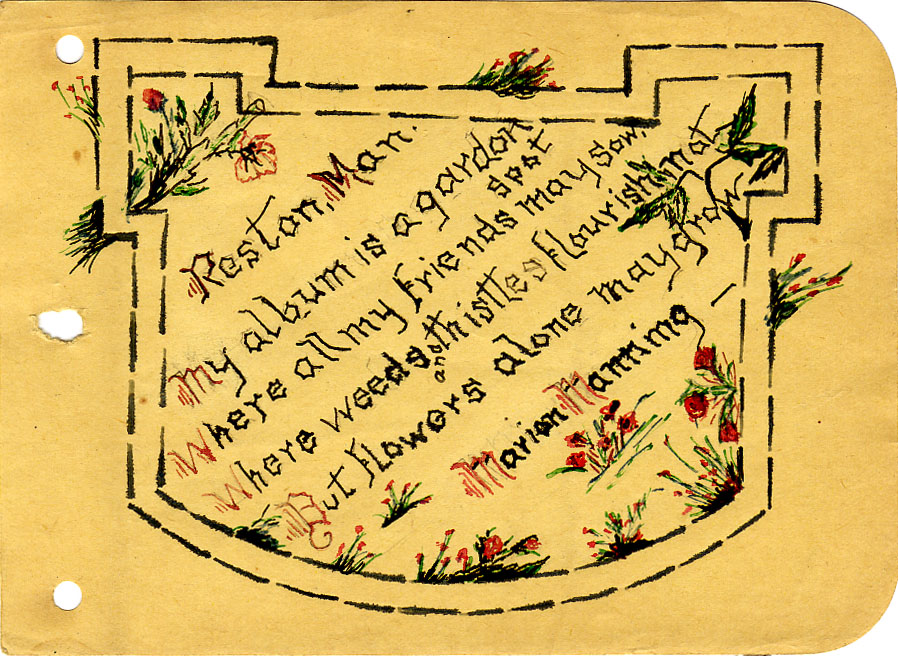 Reston, Man.
My album is a gardon spot
Where all my friends may sow.
Where weeds and thistles flourish not
But flowers alone may grow
Marion Manning